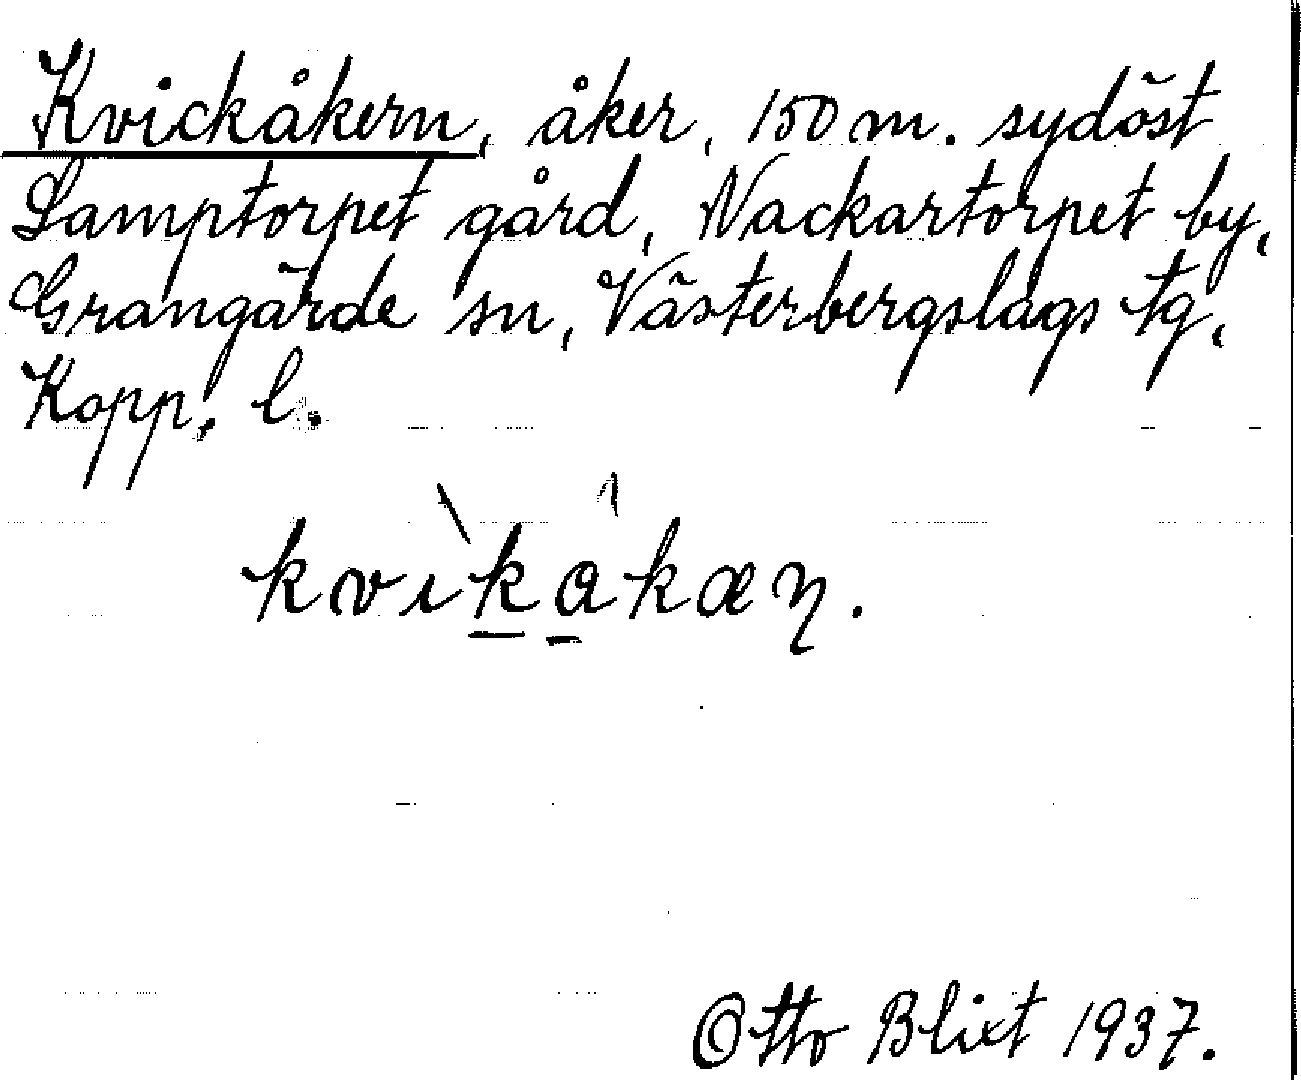 Kvickåkern, åker, 150 m. sydöst
Lamptorpet gård, Nackartorpet by,
Grangärde sn, Västerbergslags tg,
Kopp. l.
kvikakæn.
Otto Blixt 1937.